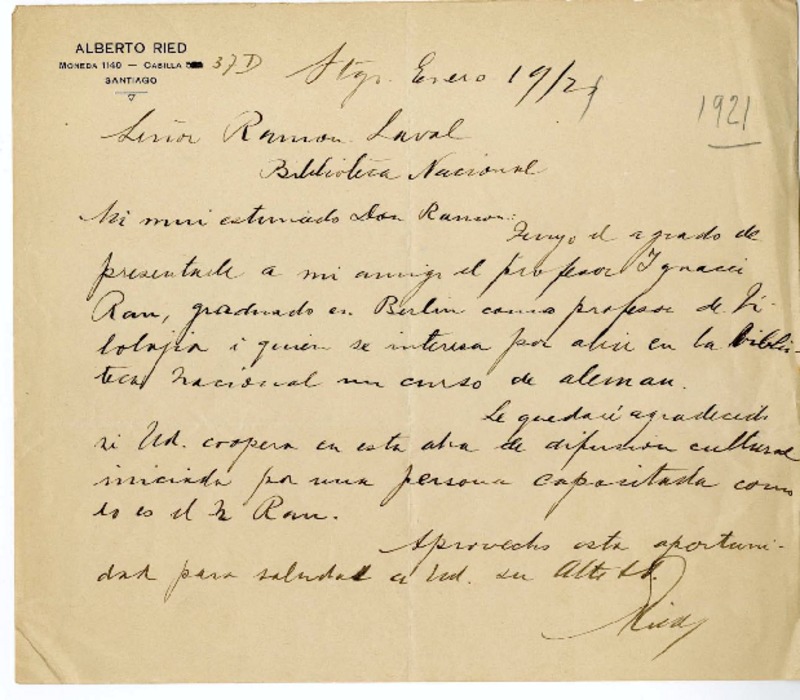 ALBERTO RIED
MONEDA 1140 — CASILLA 37 D
SANTIAGO
Stgo. Enero 19/21
1921
Señor Ramon Laval
Biblioteca Nacional
Mi mui estimado Don Ramon:
Tengo el agrado de
presentarle a mi amigo el profesor Ignacio
Rau, graduado en Berlin como profesor de Fi-
lolojia i quien se interesa por abrir en la Biblio-
teca Nacional un curso de aleman.
Le quedaré agradecido
si Ud. coopera en esta obra de difusion cultural
iniciada por una persona capacitada como
lo es el Sr Rau.
Aprovecho esta oportuni-
dad para saludar a Ud. su Atto SS.
Ried